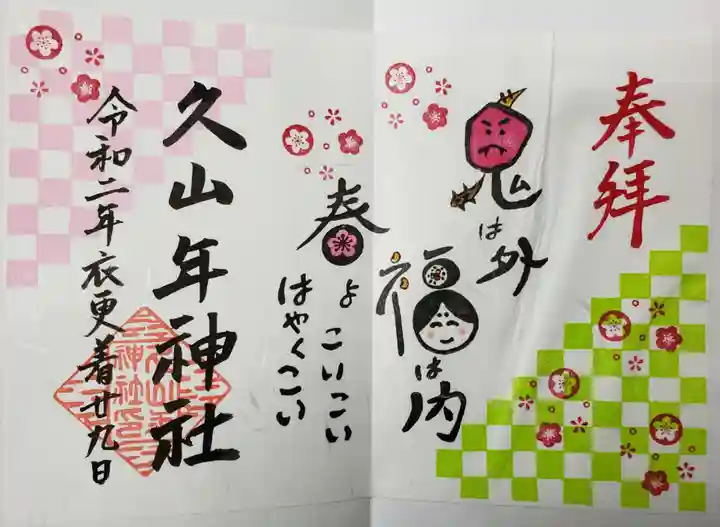 奉拝
鬼は外
福は内
春よ こいこい
はやくこい
久山年神社
令和二年衣更着廿九日